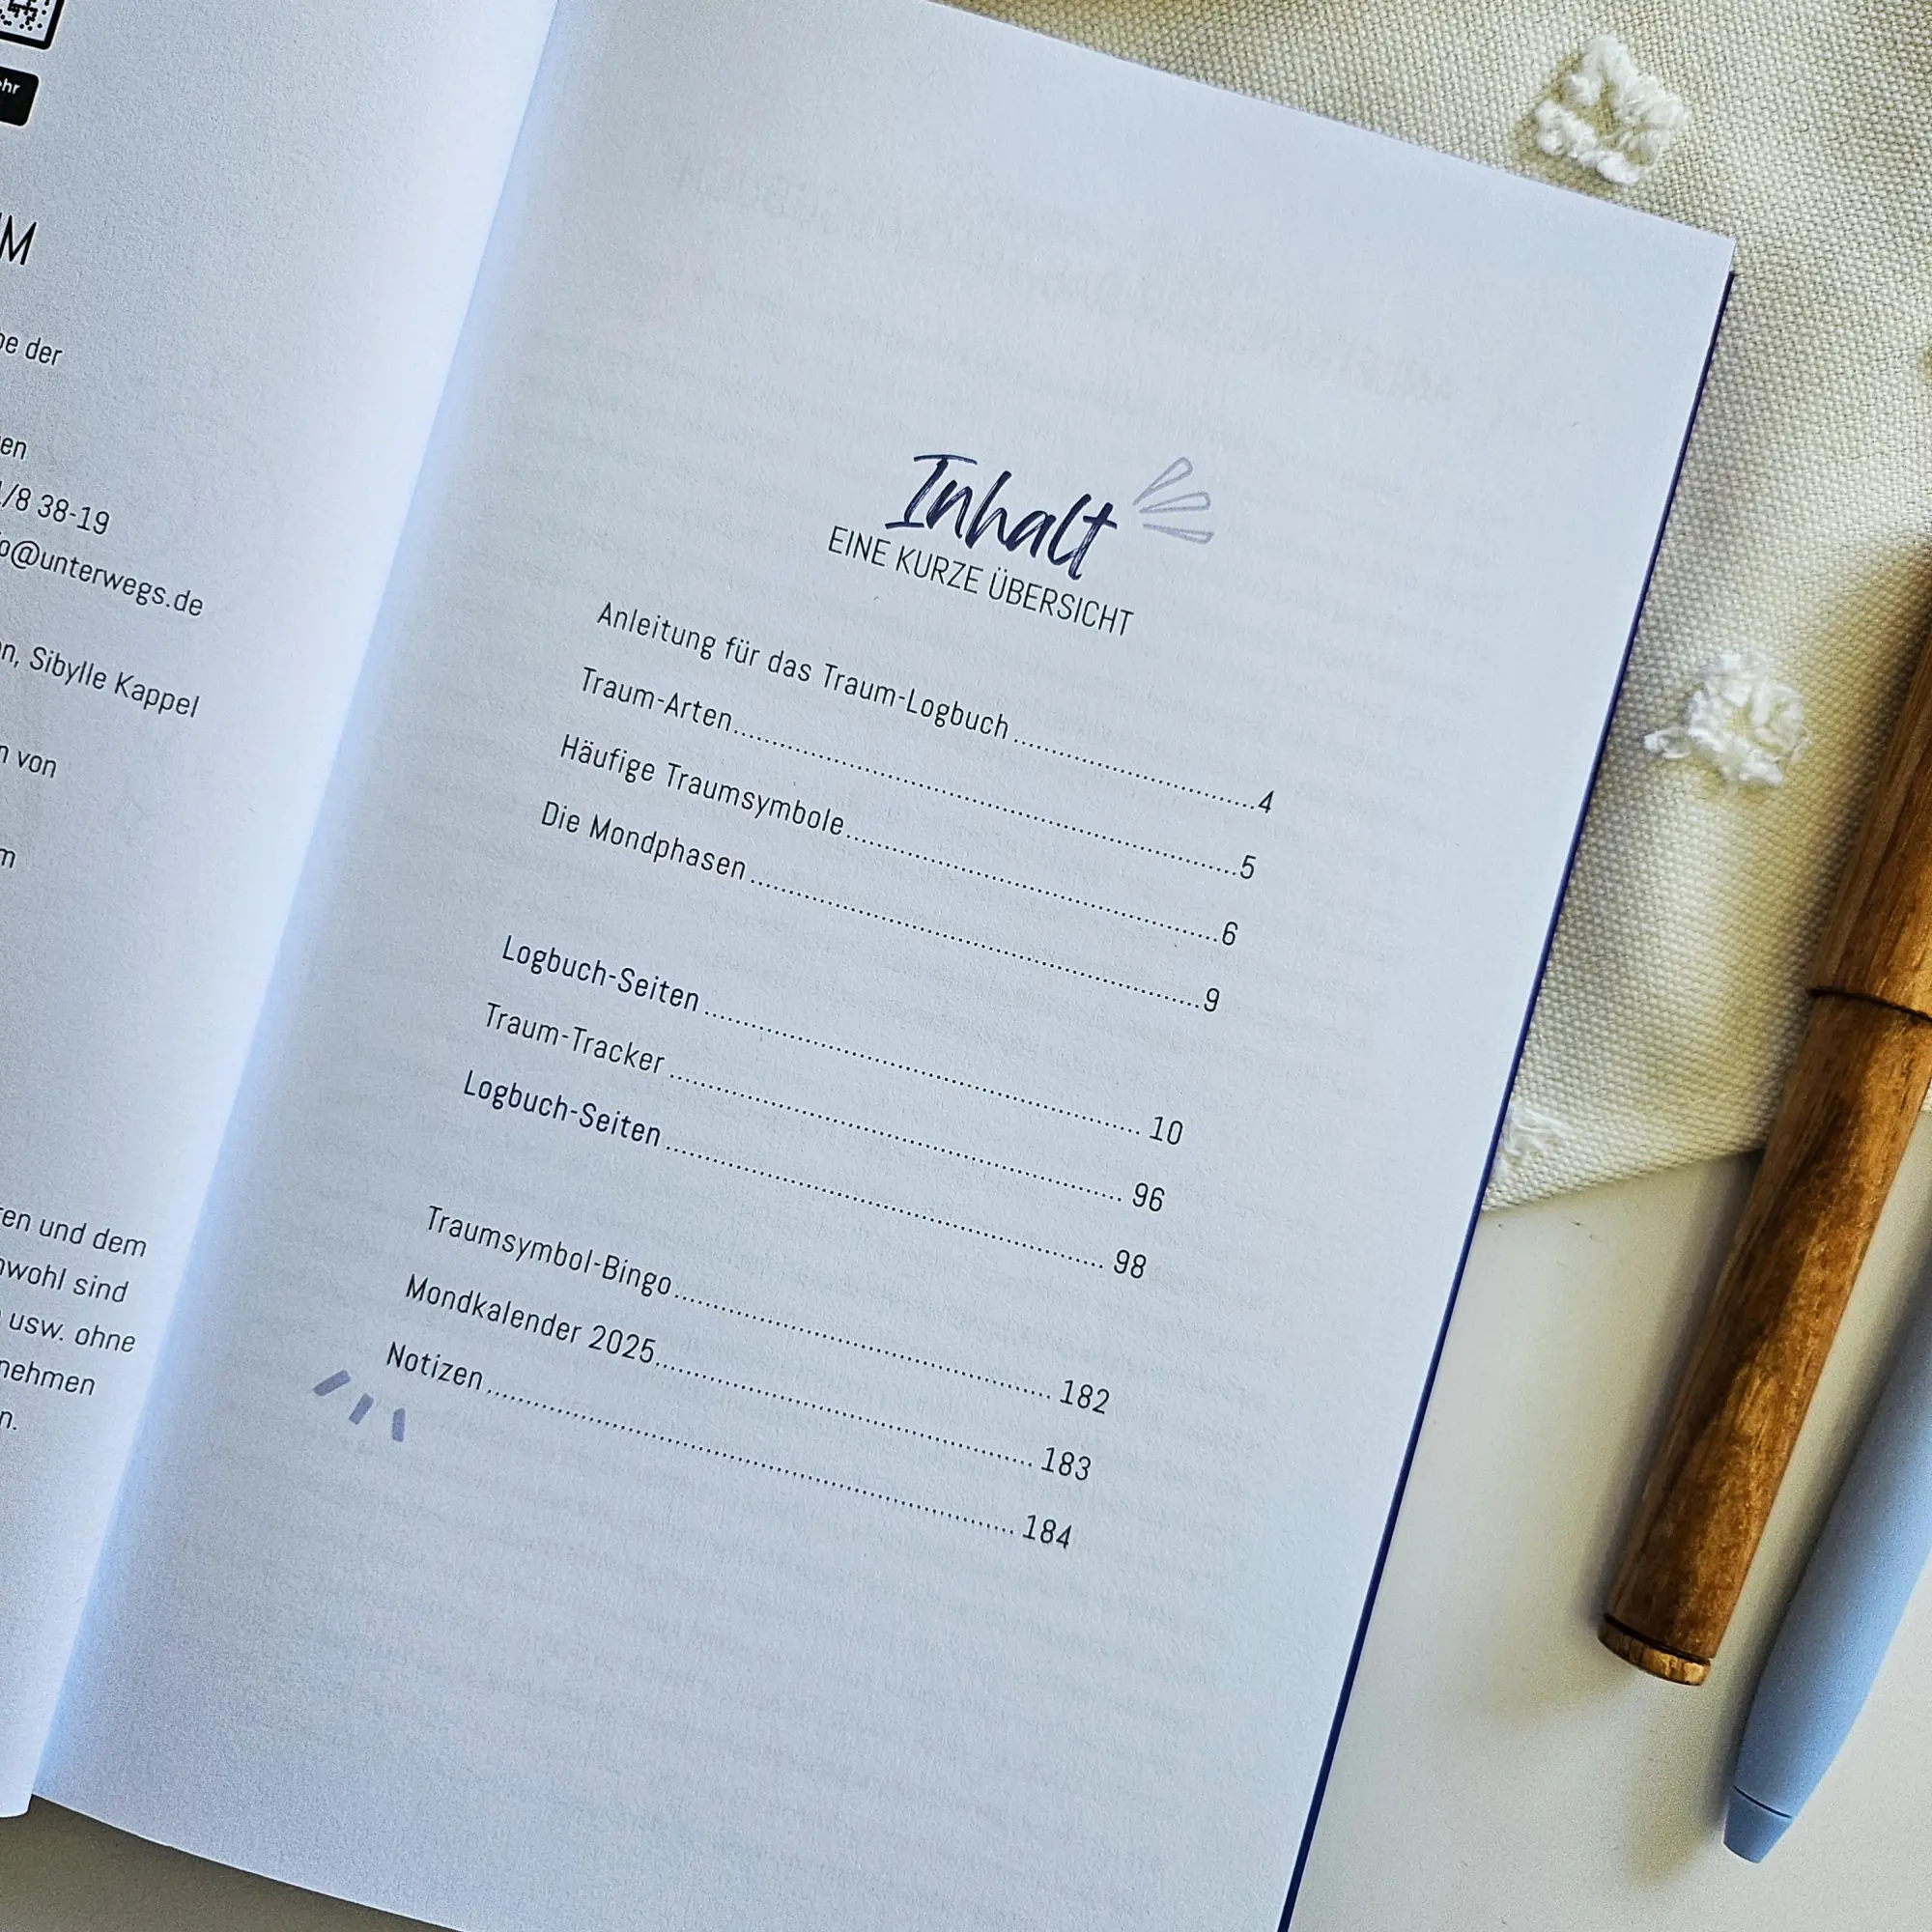 der
38-19
@unterwegs.de
Sibylle Kappel
von
en und dem
sind
usw. ohne
Inhalt
EINE KURZE ÜBERSICHT
Anleitung für das Traum-Logbuch 4
Traum-Arten 5
Häufige Traumsymbole 6
Die Mondphasen 9
Logbuch-Seiten 10
Traum-Tracker 96
Logbuch-Seiten 98
Traumsymbol-Bingo 182
Mondkalender 2025 183
Notizen 184